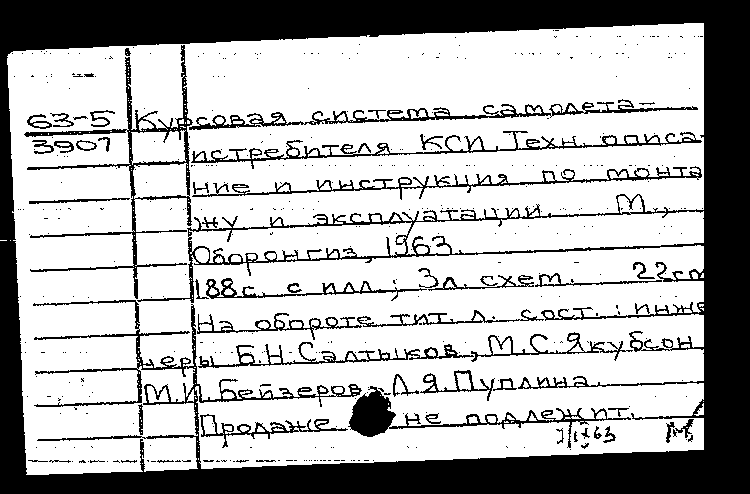 63-5 Курсовая система самолета-
3907 истребителя КСИ. Техн. описа-
ние и инструкция по монта
жу и эксплуатации. М.,
Оборонгиз, 1963.
188с. с илл.; 3л. схем. 22см
На обороте тит. л. сост.: инже
неры Б.Н.Салтыков, М.С.Якубсон
М.И.Бейзеров, Л.Я.Пуплина.
Продаже не подлежит.